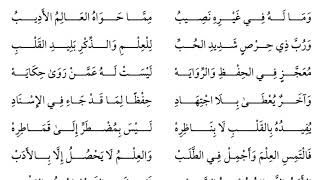 وَمَا لَهُ فِي غَيْرِهِ نَصِيبُ مِمَّا حَوَاهُ الْعَالِمُ الْأَدِيبُ
وَرُبَّ ذِي حِرْصٍ شَدِيدِ الْحُبِّ لِلْعِلْمِ وَالذِّكْرِ بَلِيدِ الْقَلْبِ
مُعَجَّزٍ فِي الْحِفْظِ وَالرِّوَايَهْ لَيْسَتْ لَهُ عَمَّنْ رَوَىٰ حِكَايَهْ
وَآخَرٌ يُعْطَىٰ بِلَا اجْتِهَادِ حِفْظًا لِمَا قَدْ جَاءَ فِي الْإِسْنَادِ
يُفِيدُهُ بِالْقَلْبِ لَا بِنَاظِرِهْ لَيْسَ بِمُضْطَرٍّ إِلَىٰ قَمَاطِرِهْ
فَالْتَمِسِ الْعِلْمَ وَأَجْمِلْ فِي الطَّلَبْ وَالْعِلْمُ لَا يَحْصُلُ إِلَّا بِالْأَدَبْ